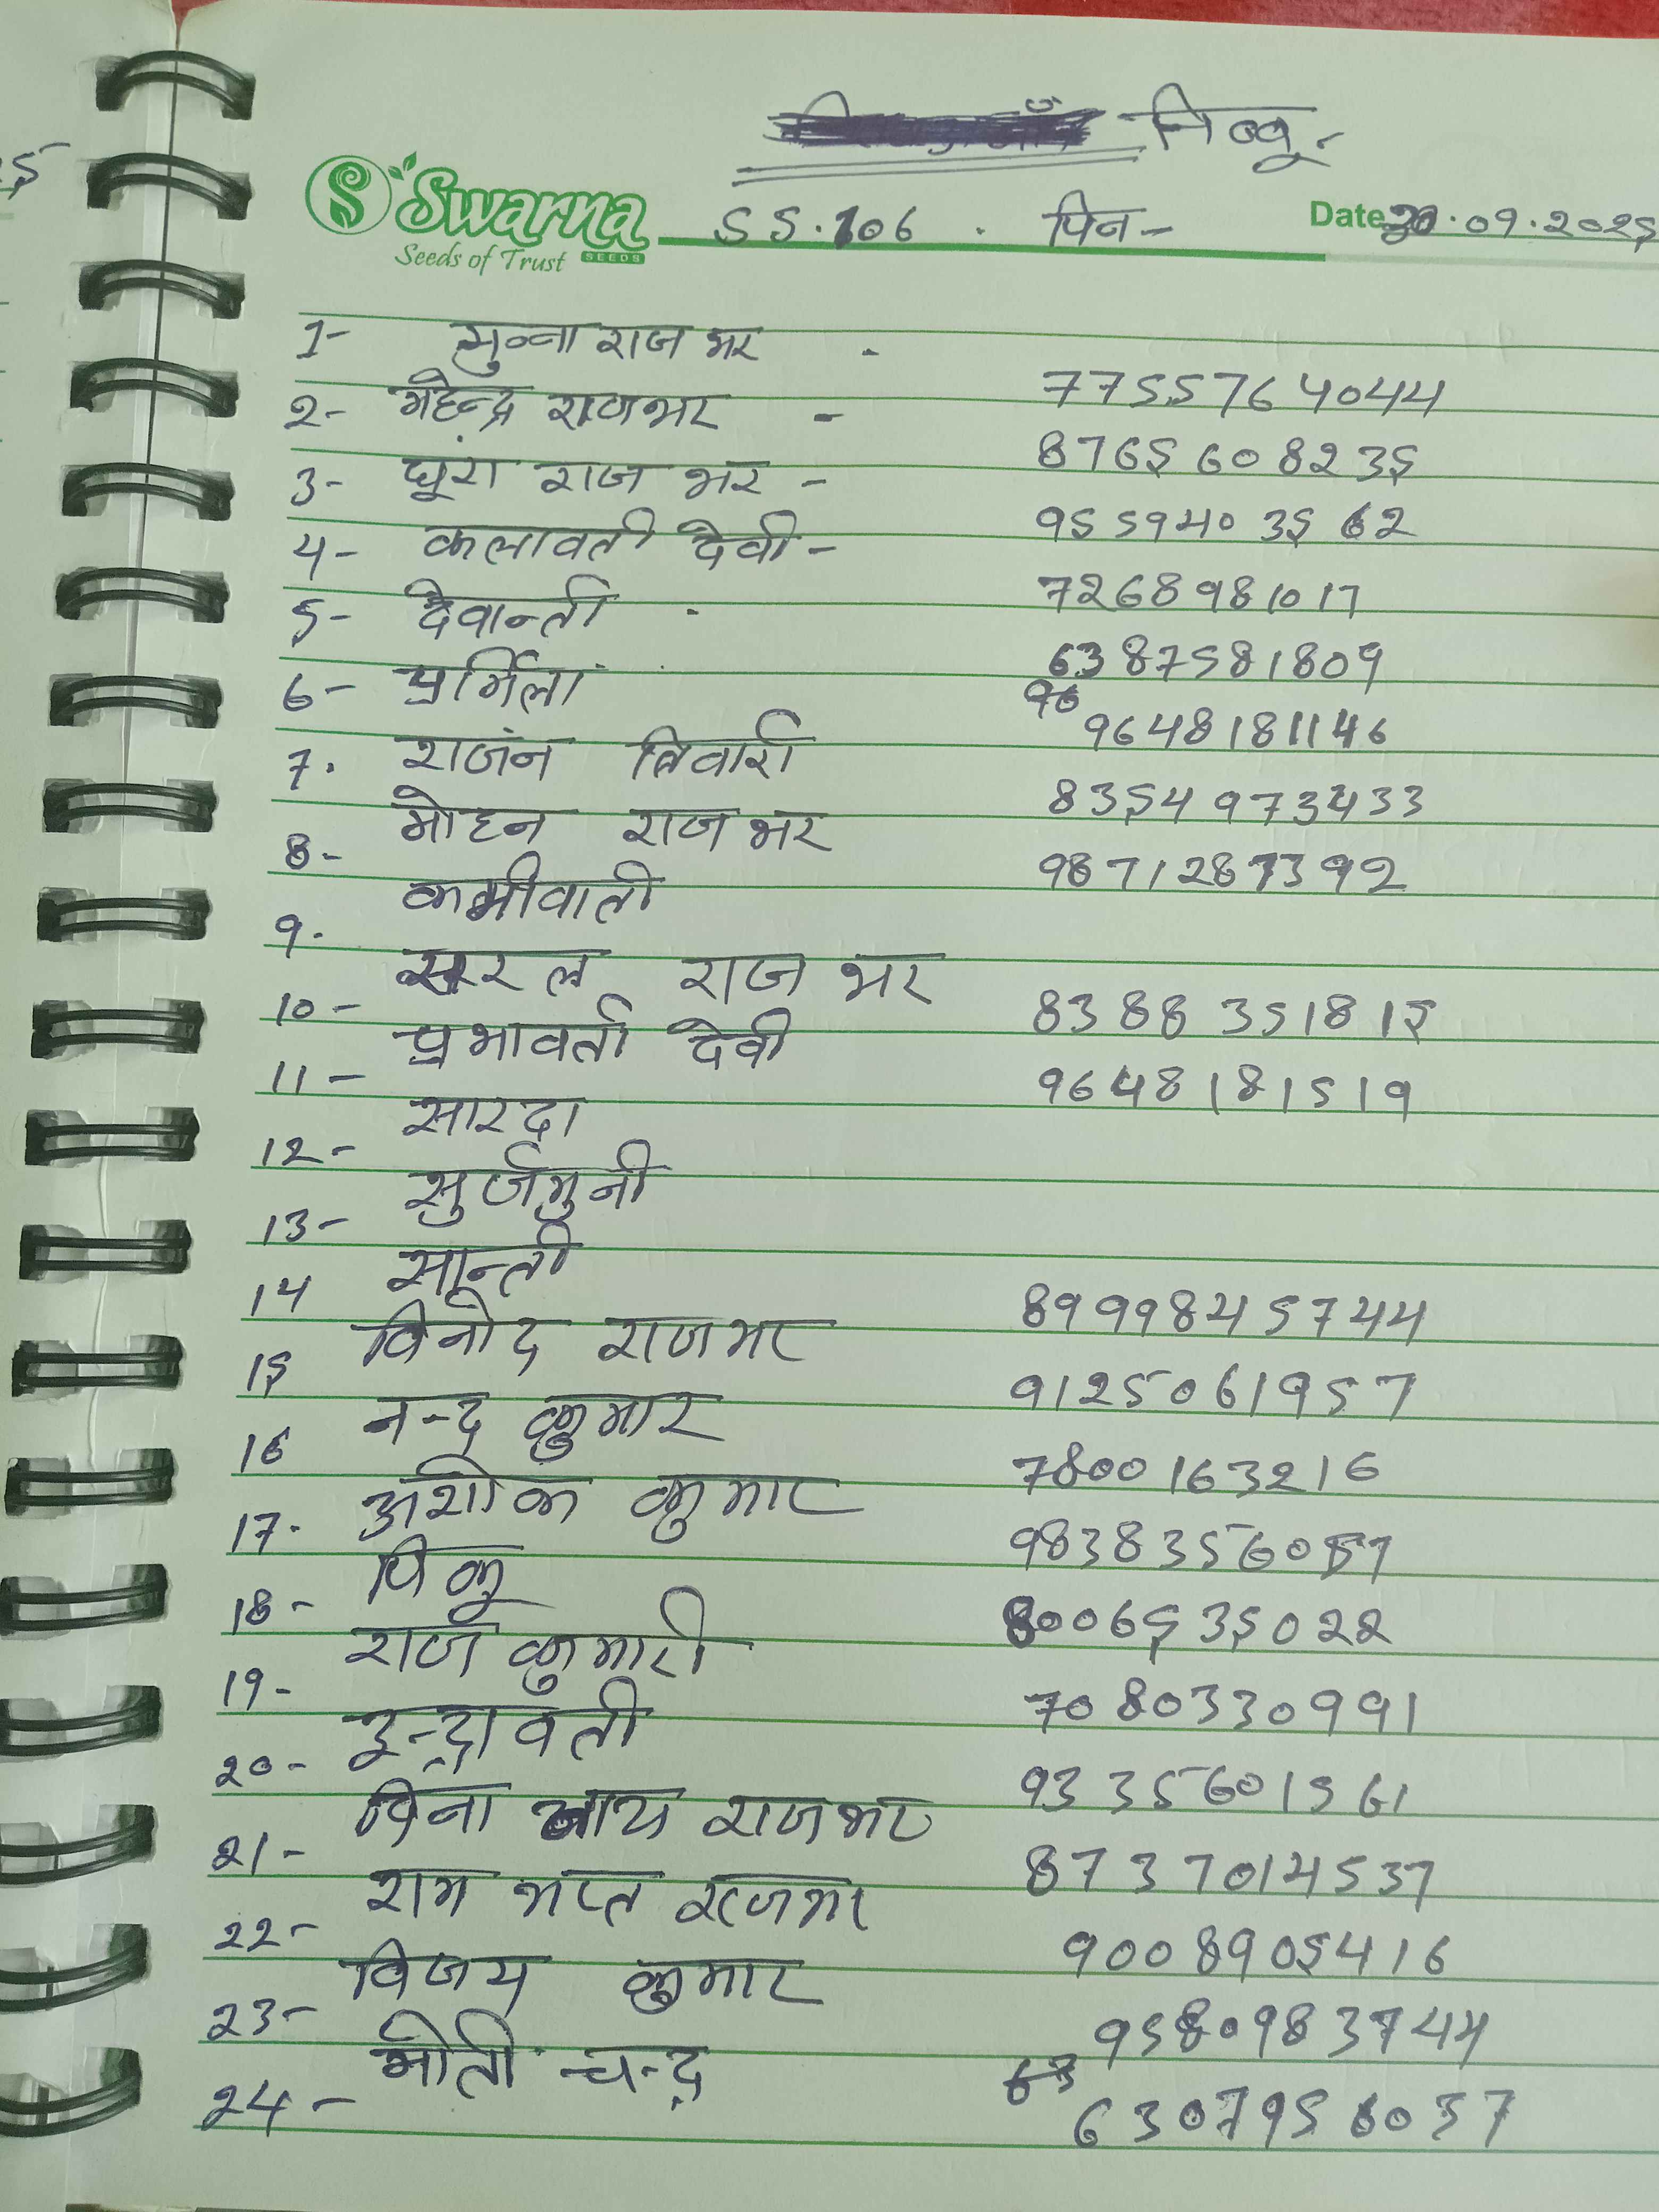 निब्बू
Swarna
Seeds of Trust SEEDS
SS.106 . पिन-
Date 30.09.2025
1- मुन्ना राज भर - 7755764044
2- महेन्द्र राजभर - 8765608235
3- घूरा राज भर - 9559403562
4- कलावती देवी - 7268981017
5- देवान्ती . 6387581809
6- प्रर्मिला 96 9648181146
7. राजन तिवारी 8354973433
8- मोहन राज भर 9871287392
9.
10- सरल राज भर 8388351815
11- प्रभावती देवी 9648181519
12- सारदा
13- सुर्जमुनी
14 सान्ती 8999845744
15 विनोद राजभर 9125061957
16 नन्द कुमार 7800163216
17. अशोक कुमार 9838356057
18- पिकू 8006535022
19- राज कुमारी 7080330991
20- इन्द्रावती 9335601561
21- विना राजभर 8737014537
22- राम राजभर 9008905416
23- विजय कुमार 9580983744
24- मोती चन्द्र 63 6307956037